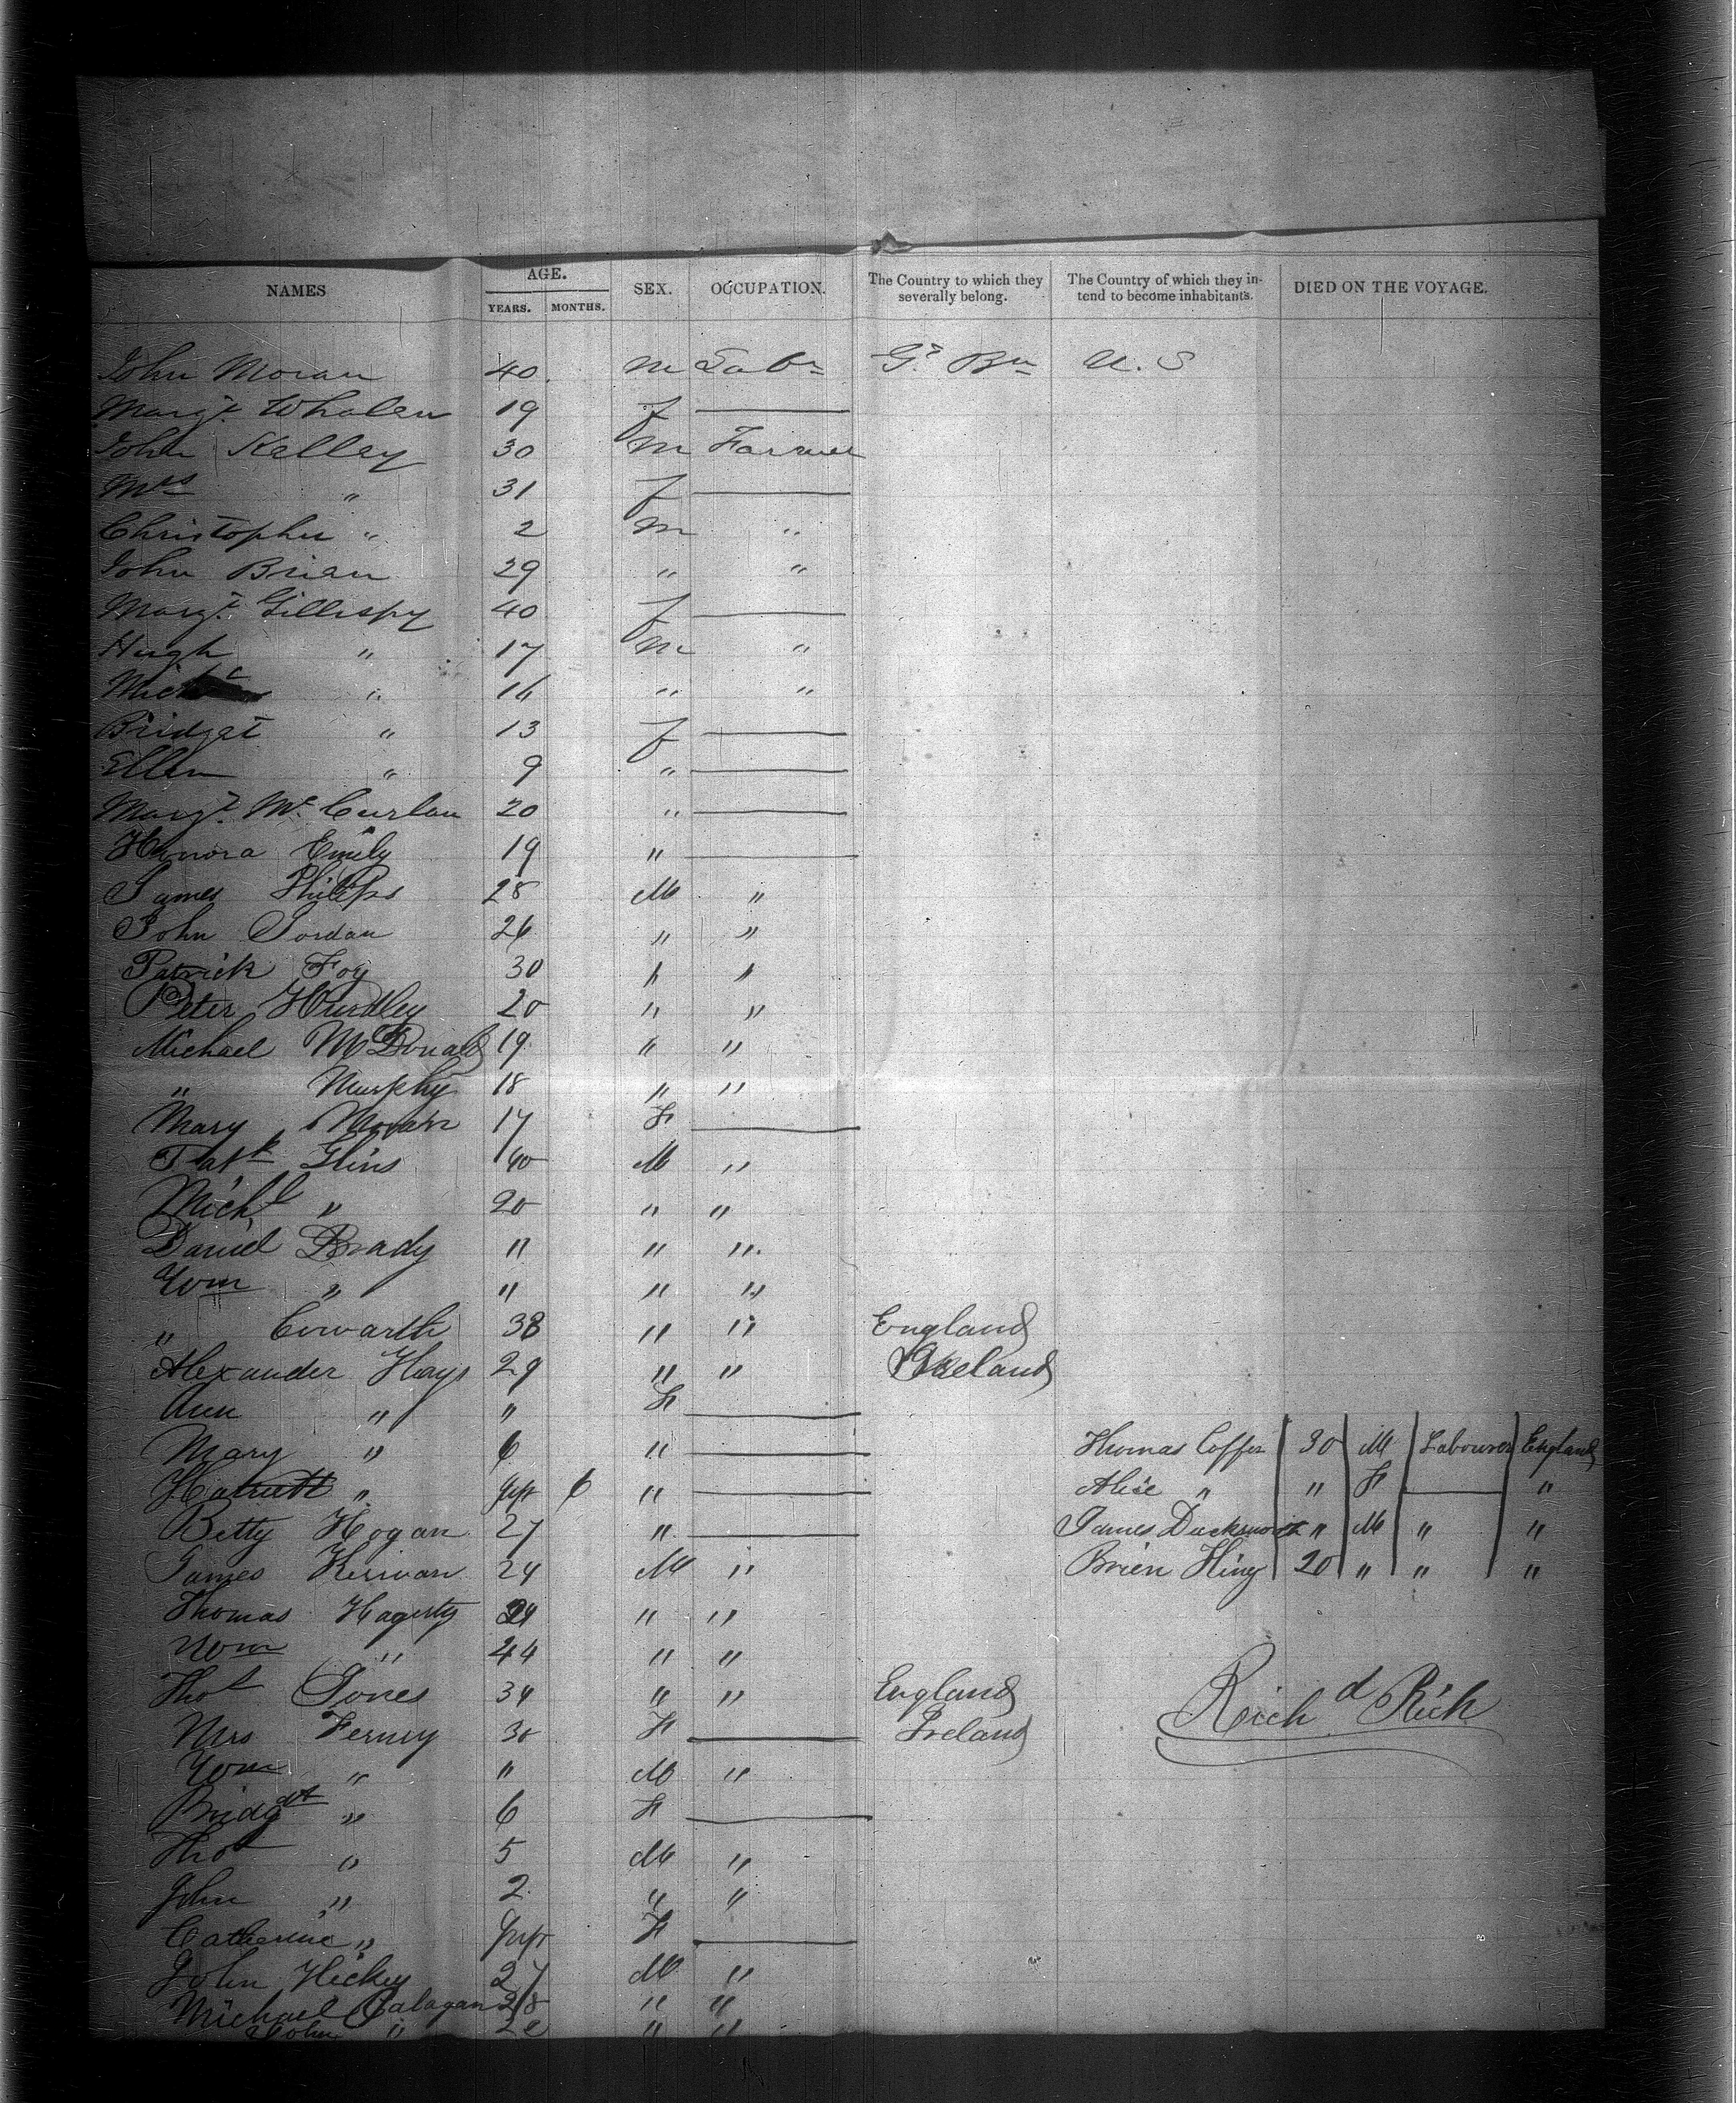 NAMES AGE. YEARS. MONTHS. SEX. OCCUPATION. The Country to which they severally belong. The Country of which they intend to become inhabitants. DIED ON THE VOYAGE.
John Moran 40 M Labr Gt Bn U.S
Margt Whalen 19 f ——
John Kelley 30 M Farmer
Mrs " 31 f ——
Christopher " 2 M "
John Brian 29 " "
Margt Gillispy 40 f ——
Hugh " 17 M "
" 16 " "
Bridget " 13 f ——
Ellen " 9 " ——
Margt McCurlan 20 " ——
Honora Emily 19 " ——
James Philips 28 M "
John Jordan 26 " "
Patrick Foy 30 " "
Peter Hurdley 20 " "
Michael McDonald 19 " "
" Murphy 18 " "
Mary Moran 17 F ——
Patk Glins 40 M "
Michl " 20 " "
Daniel Brady " " "
Wm " " " "
" Cowarth 38 " " England
Alexander Hays 29 " " Ireland
Ann " " F ——
Mary " 6 " —— Thomas Coffer 30 M Labourer England
" 6 " —— Alice " " F —— "
Betty Hogan 27 " —— James Duckworth " M " "
James Kerivan 24 M " Brien King 20 " " "
Thomas Hagerty " "
Wm " 44 " "
Thos Jones 34 " " England
Richd Rich
Mrs Ferney 30 F —— Ireland
Wm " " M "
Bridget " 6 F ——
Thos " 5 M "
John " 2 " "
Catherine " F ——
John Hickey 27 M "
Michael Calagan 28 " "
John " " "